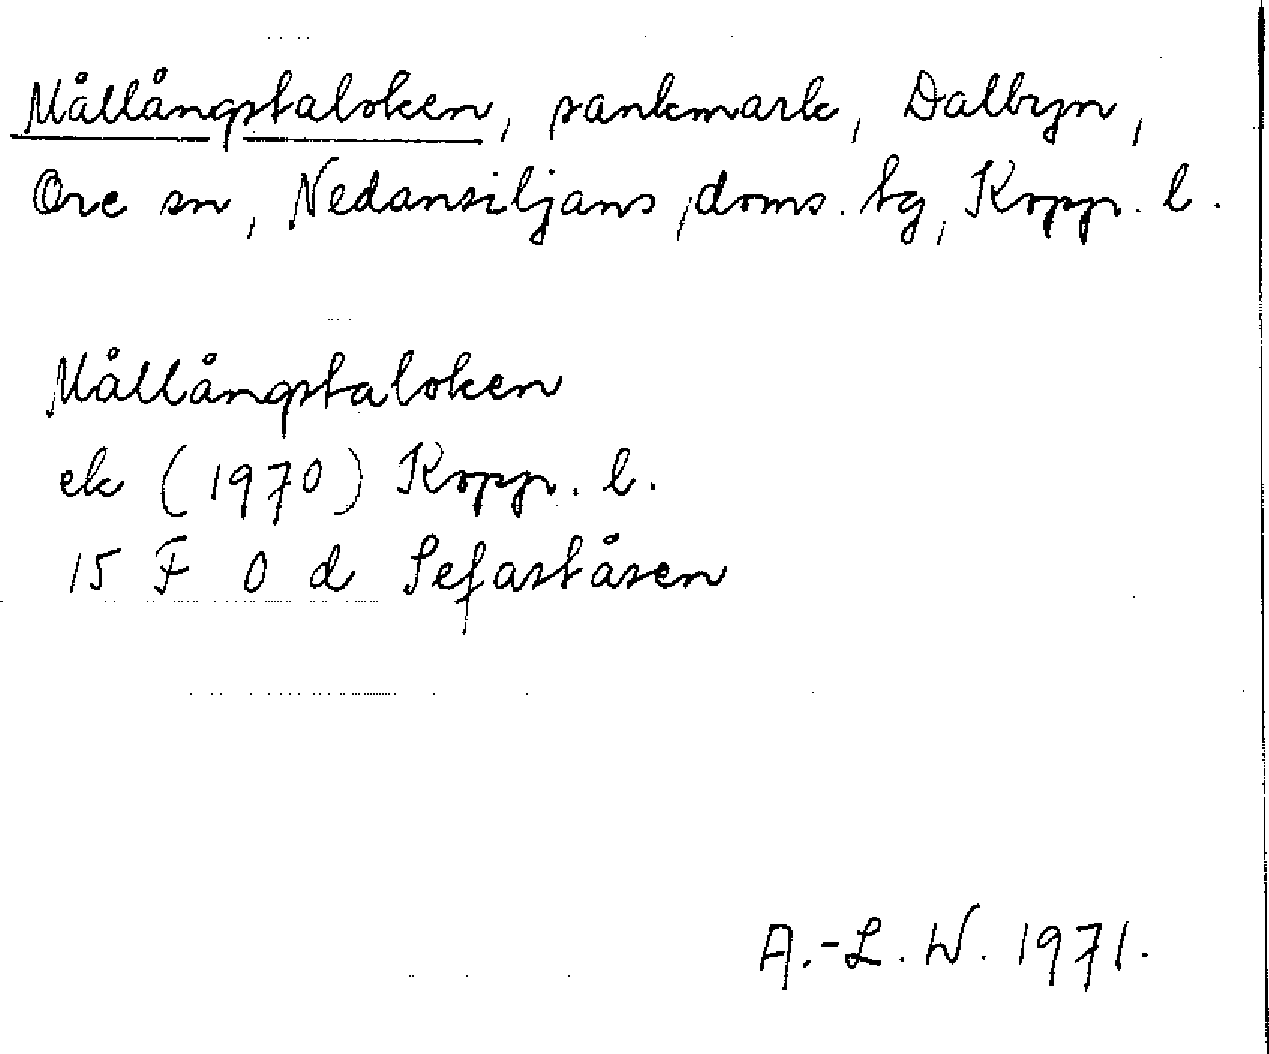 Mållångstaloken, sankmark, Dalbyn,
Ore sn, Nedansiljans doms. tg, Kopp. l.
Mållångstaloken
ek (1970) Kopp. l.
15 F 0 d Pefaståsen
A.-L. W. 1971.